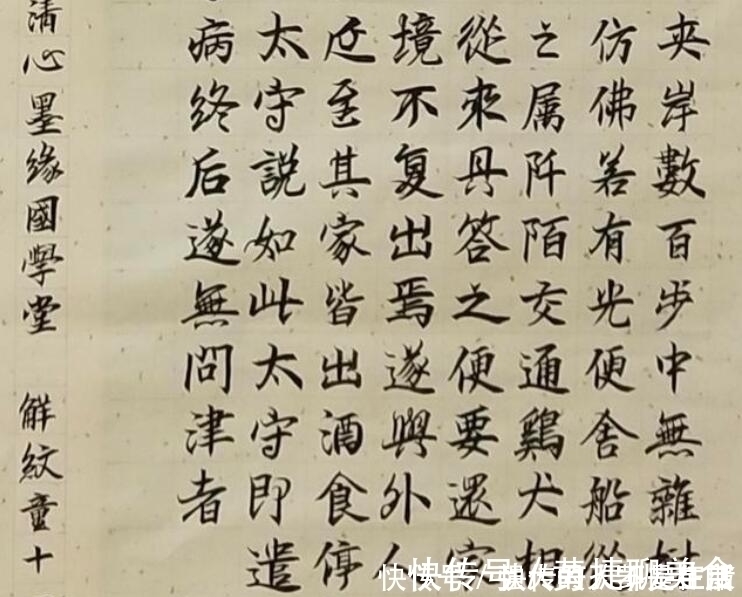 夹岸數百步中無雜
仿佛若有光便舍船從
之属阡陌交通鷄犬相
從來具答之便要還家
境不复出焉遂與外人
迋至其家皆出酒食停
太守説如此太守即遣
病終后遂無問津者
清心墨缘國學堂 解紋童十
快传号/